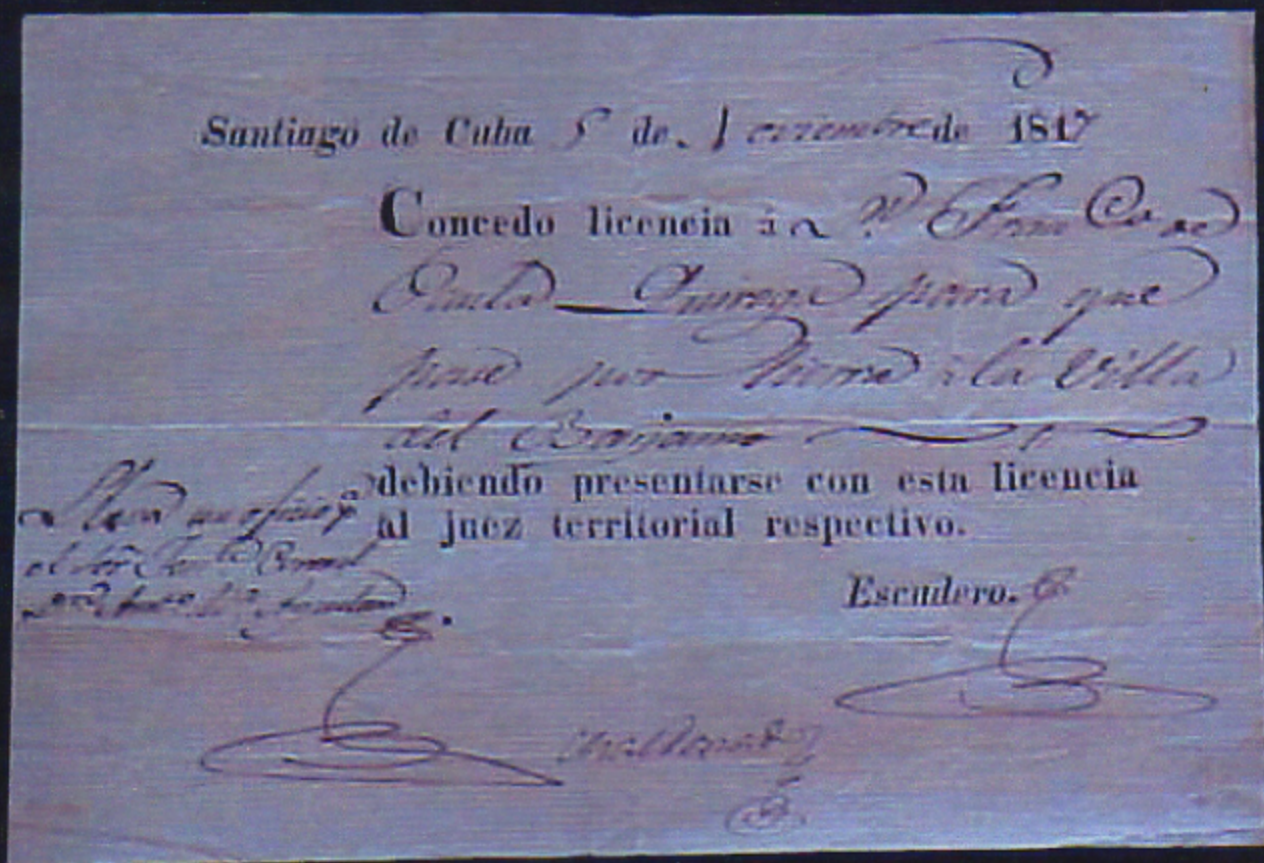 Santiago de Cuba 5 de Noviembre de 1817
Concedo licencia á Dn Franco de
Paula Quiroga para que
pase por tierra á la Villa
del Bayamo
debiendo presentarse con esta licencia
al juez territorial respectivo.
Lleva un oficio pa
el Sor Tente Coronel
Escudero.